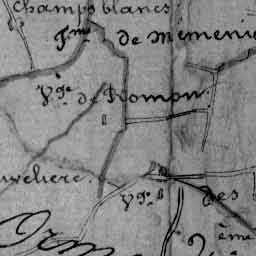 Champs blancs
fme de Mémenie
Vge de Romon.
uveliere.
Vge des
Orme
2ème